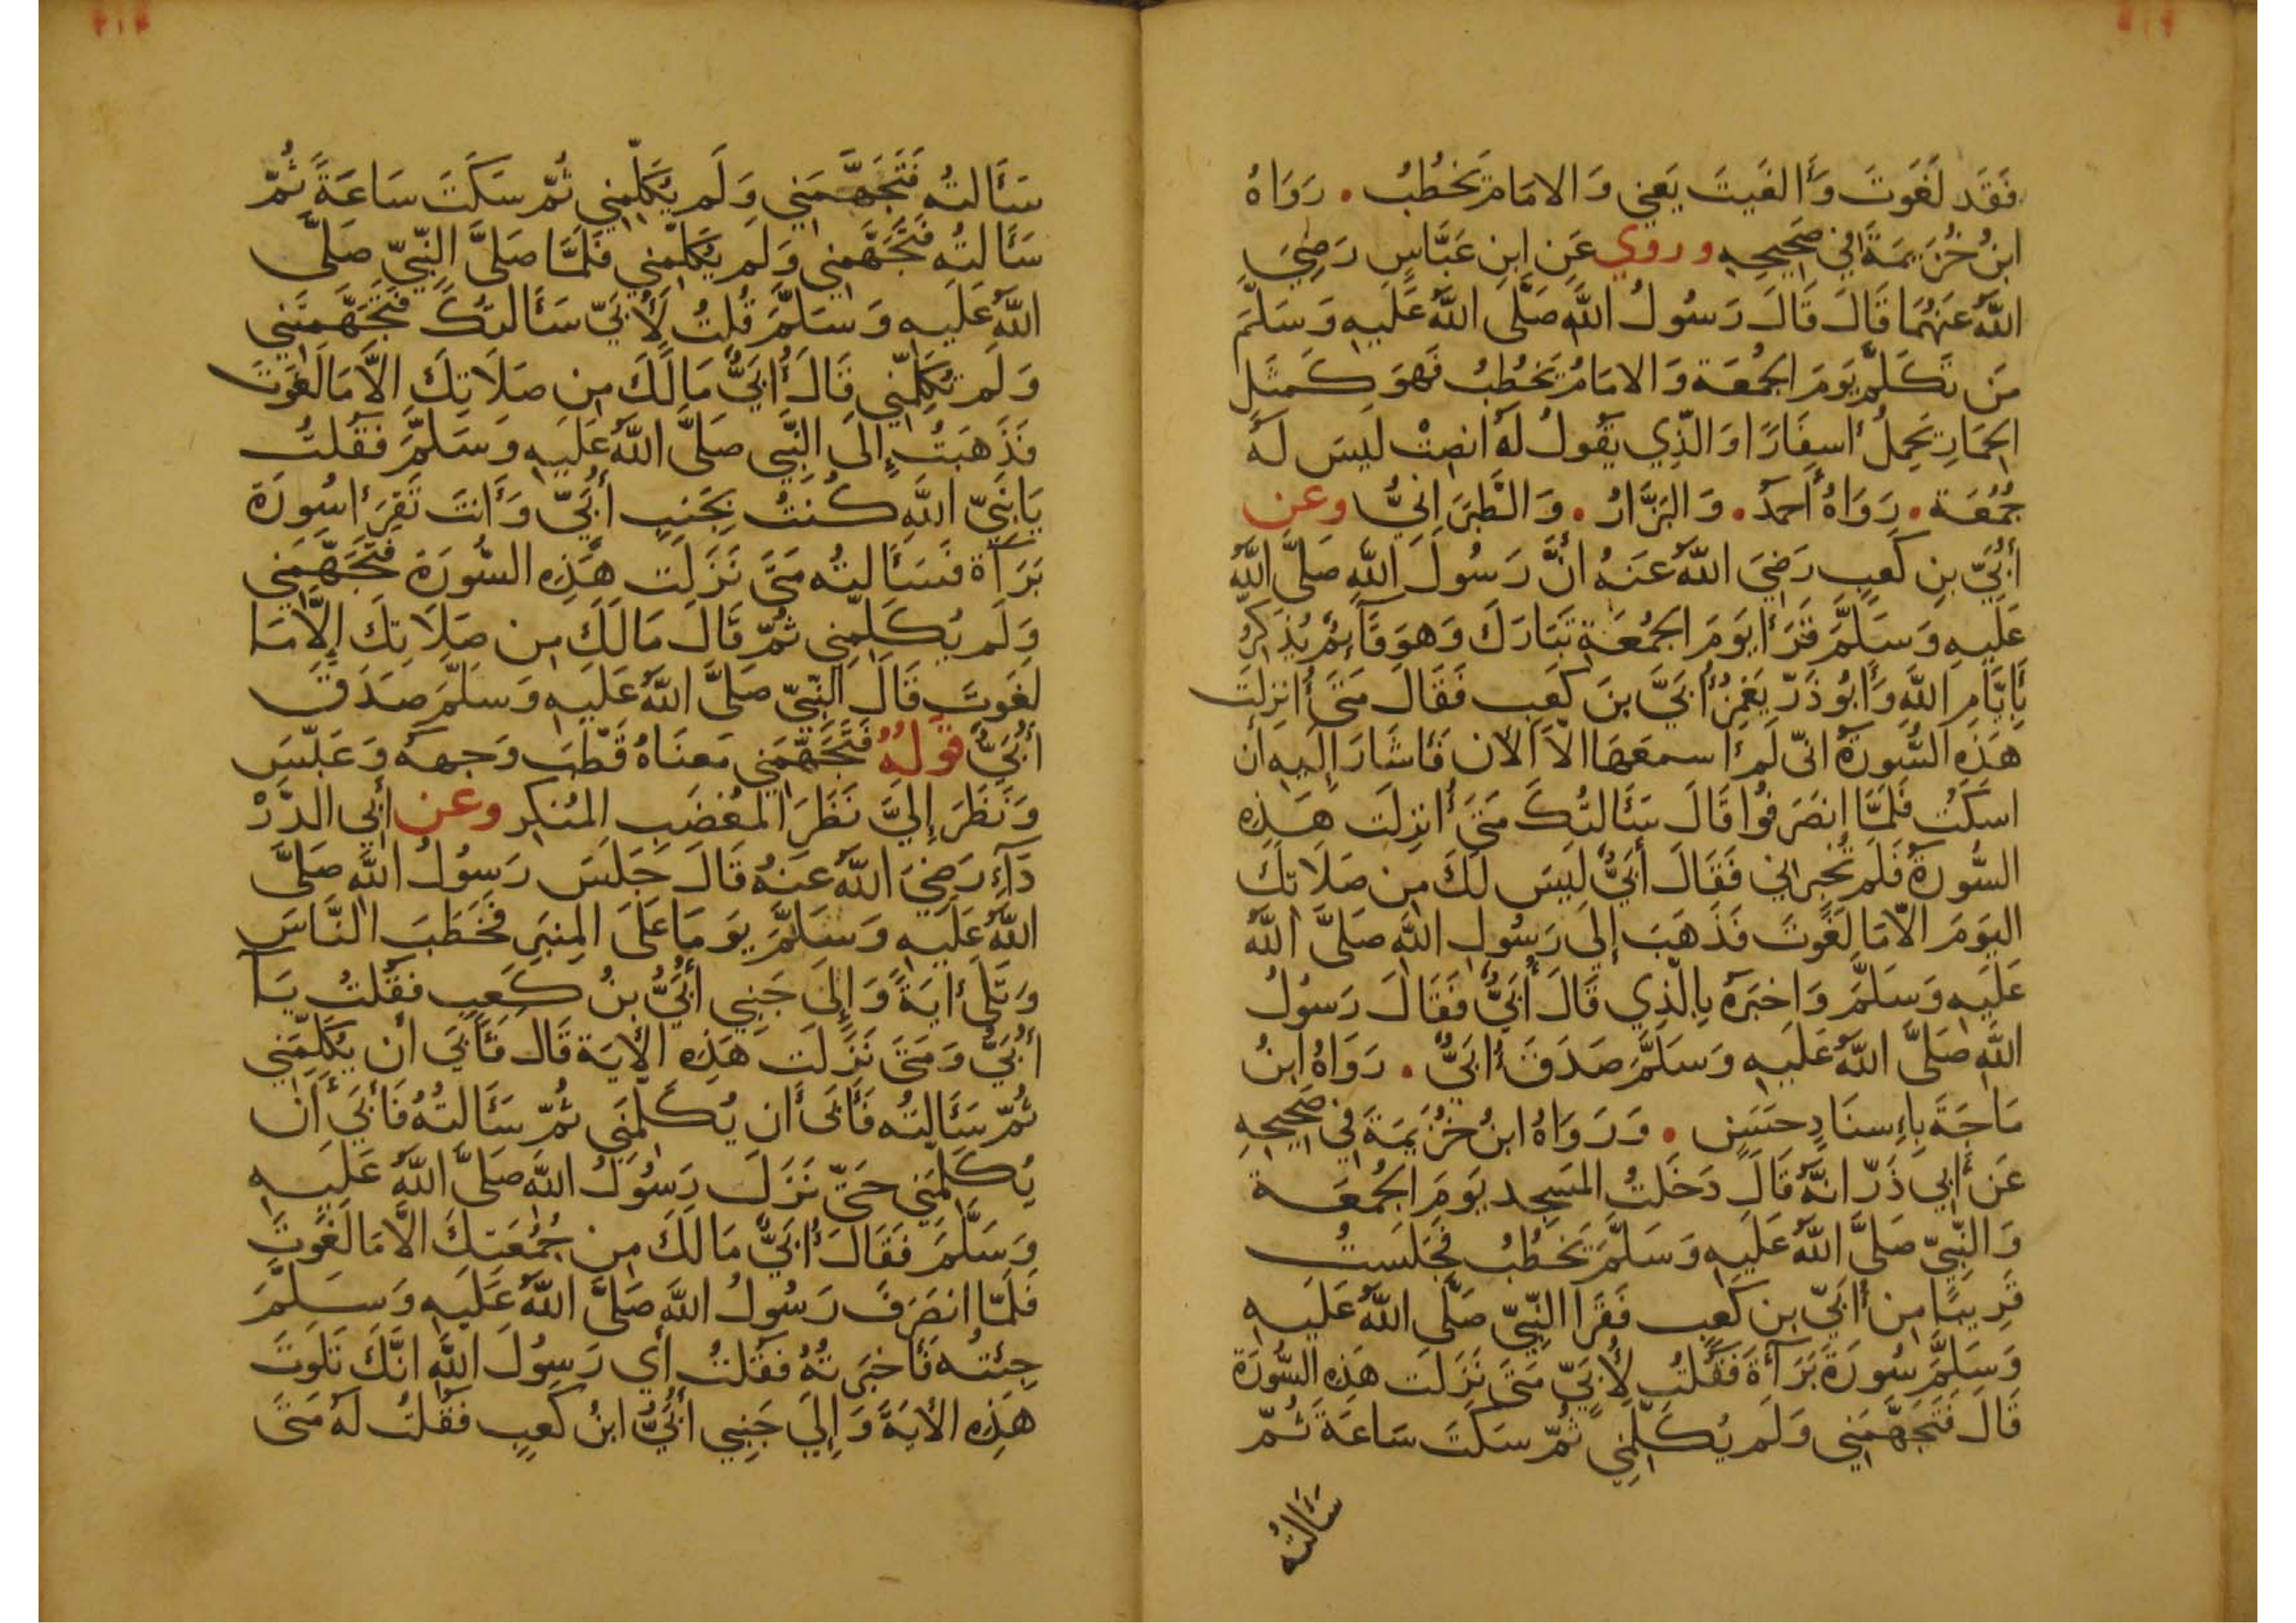 فَقَد لَغَوتَ وَأَلغَيتَ يَعنِي وَالامَامُ يَخطُبُ . رَوَاهُ
ابنُ خُزَيمَةَ فِي صَحِيحِهِ وروي عَنِ ابنِ عَبَّاسٍ رَضِيَ
اللَّهُ عَنهُمَا قَالَ قَالَ رَسُولُ اللَّهِ صَلَّى اللَّهُ عَلَيهِ وَسَلَّمَ
مَن تَكَلَّمَ يَومَ الجُمُعَة وَالامَامُ يَخطُبُ فَهوَ كَمَثَلِ
الحِمَارِ يَحمِلُ أسفَارًا وَالَّذِي يَقُولُ لَهُ انصِتْ لَيسَ لَهُ
جُمُعَة . رَوَاهُ أَحمَدُ . وَالبَزَّارُ . وَالطَّبَرَانِيُّ وعن
أُبَيِّ بنِ كَعبٍ رَضِيَ اللَّهُ عَنهُ انَّ رَسُولَ اللَّهِ صَلَّى اللَّهُ
عَلَيهِ وَسَلَّمَ قَرَأَ يَومَ الجُمُعَةِ تَبَارَكَ وَهوَ قَائِمٌ يُذَكِّرُ
بِأَيَّامِ اللَّهِ وَأَبُو ذَرّ يَغمِزُ أُبَيَّ بنَ كَعبٍ فَقَالَ مَتَى أُنزِلَت
هَذِهِ السُّورَةُ انِّي لَم أَسمَعهَا الاَّ الآن فَأَشَارَ إِلَيهِ أَن
اسكُت فَلَمَّا انصَرَفُوا قَالَ سَأَلتُكَ مَتَى أُنزِلَت هَذِهِ
السُّورَةُ فَلَم تُخبِرنِي فَقَالَ أُبَيٌّ لَيسَ لَكَ مِن صَلَاتِكَ
اليَومَ الاَّ مَا لَغَوتَ فَذَهَبَ إِلَى رَسُولِ اللَّهِ صَلَّى اللَّهُ
عَلَيهِ وَسَلَّمَ وَاخبَرَهُ بِالَّذِي قَالَ أُبَيٌّ فَقَالَ رَسُولُ
اللَّهِ صَلَّى اللَّهُ عَلَيهِ وَسَلَّمَ صَدَقَ أُبَيٌّ . رَوَاهُ ابنُ
مَاجَةَ بِإِسنَادٍ حَسَنٍ . وَرَوَاهُ ابنُ خُزَيمَةَ فِي صَحِيحِهِ
عَن أَبِي ذَرّ انَّهُ قَالَ دَخَلتُ المَسجِد يَومَ الجُمُعَة
وَالنَّبِيّ صَلَّى اللَّهُ عَلَيهِ وَسَلَّمَ يَخطُبُ فَجَلَستُ
قَرِيبًا مِن أُبَيّ بنِ كَعبٍ فَقَرَا النَّبِيّ صَلَّى اللَّهُ عَلَيهِ
وَسَلَّمَ سُورَةَ بَرَآءَةَ فَقُلتُ لأُبَيّ مَتَى نَزَلَت هَذِهِ السُّورَة
قَالَ فَتَجَهَّمَنِي وَلَم يُكَلِّمنِي ثُمّ سَكَتَ سَاعَةً ثُمّ
سَأَلتُهُ
سَأَلتُهُ فَتَجَهَّمَنِي وَلَم يُكَلِّمنِي ثُمّ سَكَتَ سَاعَةً ثُمّ
سَأَلتُهُ فَتَجَهَّمَنِي وَلَم يُكَلِّمنِي فَلَمَّا صَلَّى النَّبِيّ صَلَّى
اللَّهُ عَلَيهِ وَسَلَّمَ قُلتُ لأُبَيّ سَأَلتُكَ فَتَجَهَّمتَنِي
وَلَم تُكَلِّمنِي قَالَ أُبَيٌّ مَا لَكَ مِن صَلَاتِكَ الاَّ مَا لَغَوتَ
فَذَهَبتُ إِلَى النَّبِّي صَلَّى اللَّهُ عَلَيهِ وَسَلَّمَ فَقُلتُ
يَا نَبِيّ اللَّهِ كُنتُ بِجَنبِ أُبَيّ وَأَنتَ تَقرَأُ سُورَة
بَرَآءة فَسَأَلتُهُ مَتَى نَزَلَت هَذِهِ السُّورَة فَتَجَهَّمَنِي
وَلَم يُكَلِّمنِي ثُمّ قَالَ مَا لَكَ مِن صَلَاتِكَ إِلاَّ مَا
لَغَوتَ قَالَ النَّبِيّ صَلَّى اللَّهُ عَلَيهِ وَسَلَّمَ صَدَقَ
أُبَيٌّ قولهُ فَتَجَهَّمَنِي مَعنَاهُ قَطَّبَ وَجهَهُ وَعَبَّسَ
وَنَظَرَ إِلَيَّ نَظَرَ المُغضَبِ المُنكِرِ وعن أَبِي الدَّرْ
دَآءِ رَضِيَ اللَّهُ عَنهُ قَالَ جَلَسَ رَسُولُ اللَّهِ صَلَّى
اللَّهُ عَلَيهِ وَسَلَّمَ يَومَا عَلَى المِنبَرِ فَخَطَبَ النَّاسَ
وَتَلَى أيَةً وَإِلَى جَنبِي أُبَيُّ بنُ كَعبٍ فَقُلتُ يَا
أُبَيُّ وَمَتَى نَزَلَت هَذِهِ الأيَة قَالَ فَأَبَى أَن يُكَلِّمَنِي
ثُمّ سَأَلتُهُ فَأَبَى أَن يُكَلِّمَنِي ثُمّ سَأَلتُهُ فَأَبَى أَن
يُكَلِّمَنِي حَتَّى نَزَلَ رَسُولُ اللَّهِ صَلَّى اللَّهُ عَلَيهِ
وَسَلَّمَ فَقَالَ أُبَيٌّ مَا لَكَ مِن جُمُعَتِكَ الاَّ مَا لَغَوتَ
فَلَمَّا إنصَرَفَ رَسُولُ اللَّهِ صَلَّى اللَّهُ عَلَيهِ وَسَلَّمَ
جِئتُهُ فَأَخبَرتُهُ فَقُلتُ أَي رَسُولَ اللَّهِ انَّكَ تَلَوتَ
هَذِهِ الأيَةَ وَإِلَى جَنبِي أُبَيُّ ابنُ كَعبٍ فَقُلتُ لَهُ مَتَى